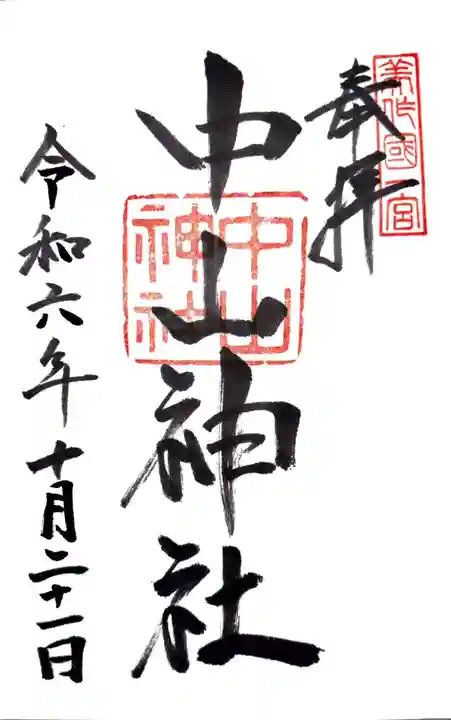 奉拝
美作國一宮
中山神社
中山神社
令和六年十月二十一日